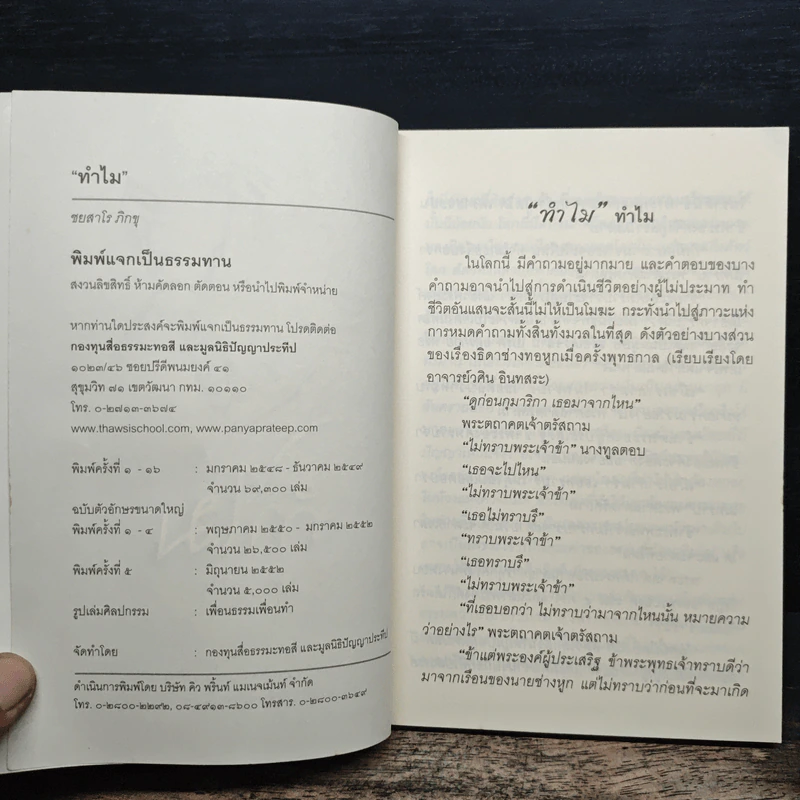 “ทำไม”
ชยสาโร ภิกขุ
พิมพ์แจกเป็นธรรมทาน
สงวนลิขสิทธิ์ ห้ามคัดลอก ตัดตอน หรือนำไปพิมพ์จำหน่าย
หากท่านใดประสงค์จะพิมพ์แจกเป็นธรรมทาน โปรดติดต่อ
กองทุนสื่อธรรมะทอสี และมูลนิธิปัญญาประทีป
๑๐๒๓/๔๖ ซอยปรีดีพนมยงค์ ๔๑
สุขุมวิท ๗๑ เขตวัฒนา กทม. ๑๐๑๑๐
โทร. ๐-๒๗๑๓-๓๖๗๔
www.thawsischool.com, www.panyaprateep.com
พิมพ์ครั้งที่ ๑ - ๑๖ : มกราคม ๒๕๔๘ - ธันวาคม ๒๕๔๙
จำนวน ๖๙,๓๐๐ เล่ม
ฉบับตัวอักษรขนาดใหญ่
พิมพ์ครั้งที่ ๑ - ๔ : พฤษภาคม ๒๕๕๐ - มกราคม ๒๕๕๒
จำนวน ๒๖,๕๐๐ เล่ม
พิมพ์ครั้งที่ ๕ : มิถุนายน ๒๕๕๒
จำนวน ๕,๐๐๐ เล่ม
รูปเล่มศิลปกรรม : เพื่อนธรรมเพื่อนทำ
จัดทำโดย : กองทุนสื่อธรรมะทอสี และมูลนิธิปัญญาประทีป
ดำเนินการพิมพ์โดย บริษัท คิว พริ้นท์ แมเนจเม้นท์ จำกัด
โทร. ๐-๒๘๐๐-๒๒๙๒, ๐๘-๔๙๑๓-๘๖๐๐ โทรสาร. ๐-๒๘๐๐-๓๖๔๙
“ทำไม” ทำไม
ในโลกนี้ มีคำถามอยู่มากมาย และคำตอบของบาง
คำถามอาจนำไปสู่การดำเนินชีวิตอย่างผู้ไม่ประมาท ทำ
ชีวิตอันแสนจะสั้นนี้ไม่ให้เป็นโมฆะ กระทั่งนำไปสู่ภาวะแห่ง
การหมดคำถามทั้งสิ้นทั้งมวลในที่สุด ดังตัวอย่างบางส่วน
ของเรื่องธิดาช่างทอหูกเมื่อครั้งพุทธกาล (เรียบเรียงโดย
อาจารย์วศิน อินทสระ)
“ดูก่อนกุมาริกา เธอมาจากไหน”
พระตถาคตเจ้าตรัสถาม
“ไม่ทราบพระเจ้าข้า” นางทูลตอบ
“เธอจะไปไหน”
“ไม่ทราบพระเจ้าข้า”
“เธอไม่ทราบรึ”
“ทราบพระเจ้าข้า”
“เธอทราบรึ”
“ไม่ทราบพระเจ้าข้า”
“ที่เธอบอกว่า ไม่ทราบว่ามาจากไหนนั้น หมายความ
ว่าอย่างไร” พระตถาคตเจ้าตรัสถาม
“ข้าแต่พระองค์ผู้ประเสริฐ ข้าพระพุทธเจ้าทราบดีว่า
มาจากเรือนของนายช่างหูก แต่ไม่ทราบว่าก่อนที่จะมาเกิด